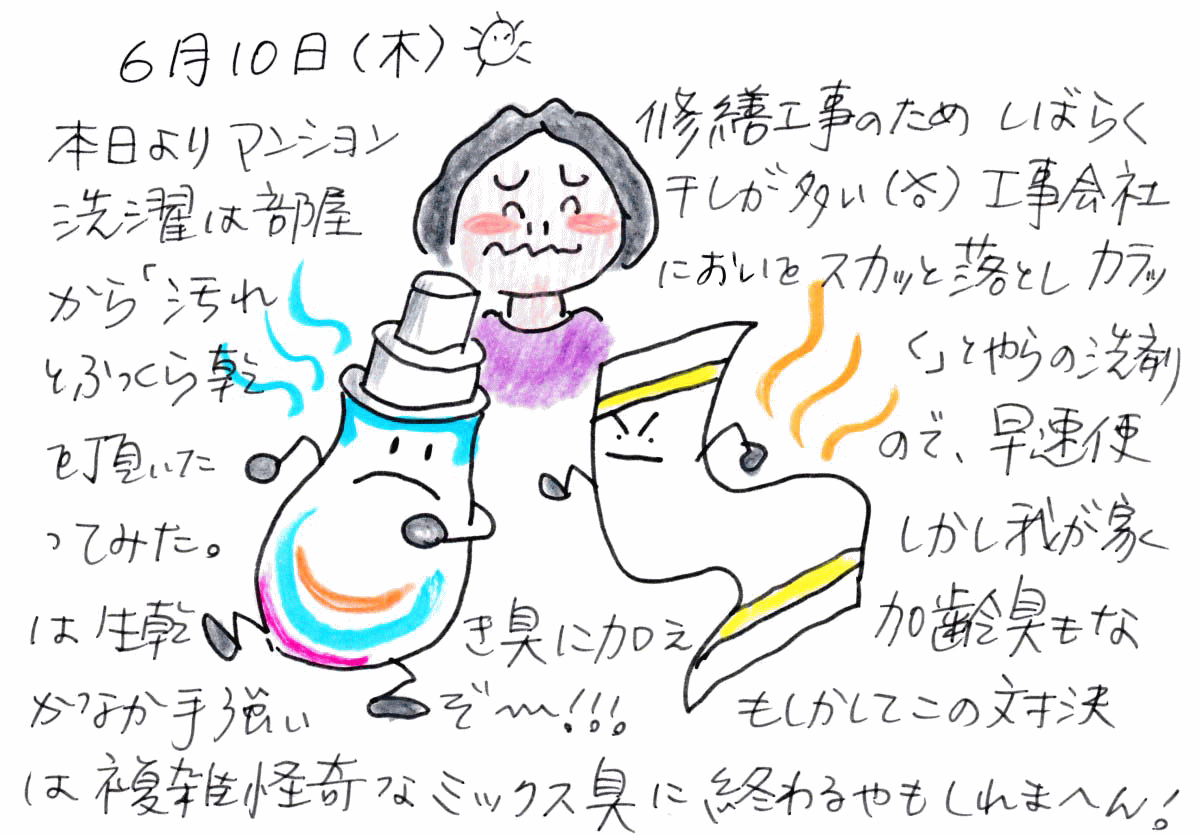 6月10日（木）
本日よりマンション 修繕工事のため しばらく
洗濯は部屋 干しが多い（答）工事会社
から「汚れ においをスカッと落とし カラッ
とふっくら乾 く」とやらの洗剤
を頂いた ので、早速使
ってみた。 しかし我が家
は生乾 き臭に加え 加齢臭もな
かなか手強い ぞ〜!!! もしかしてこの対決
は複雑怪奇なミックス臭に終わるやもしれまへん!